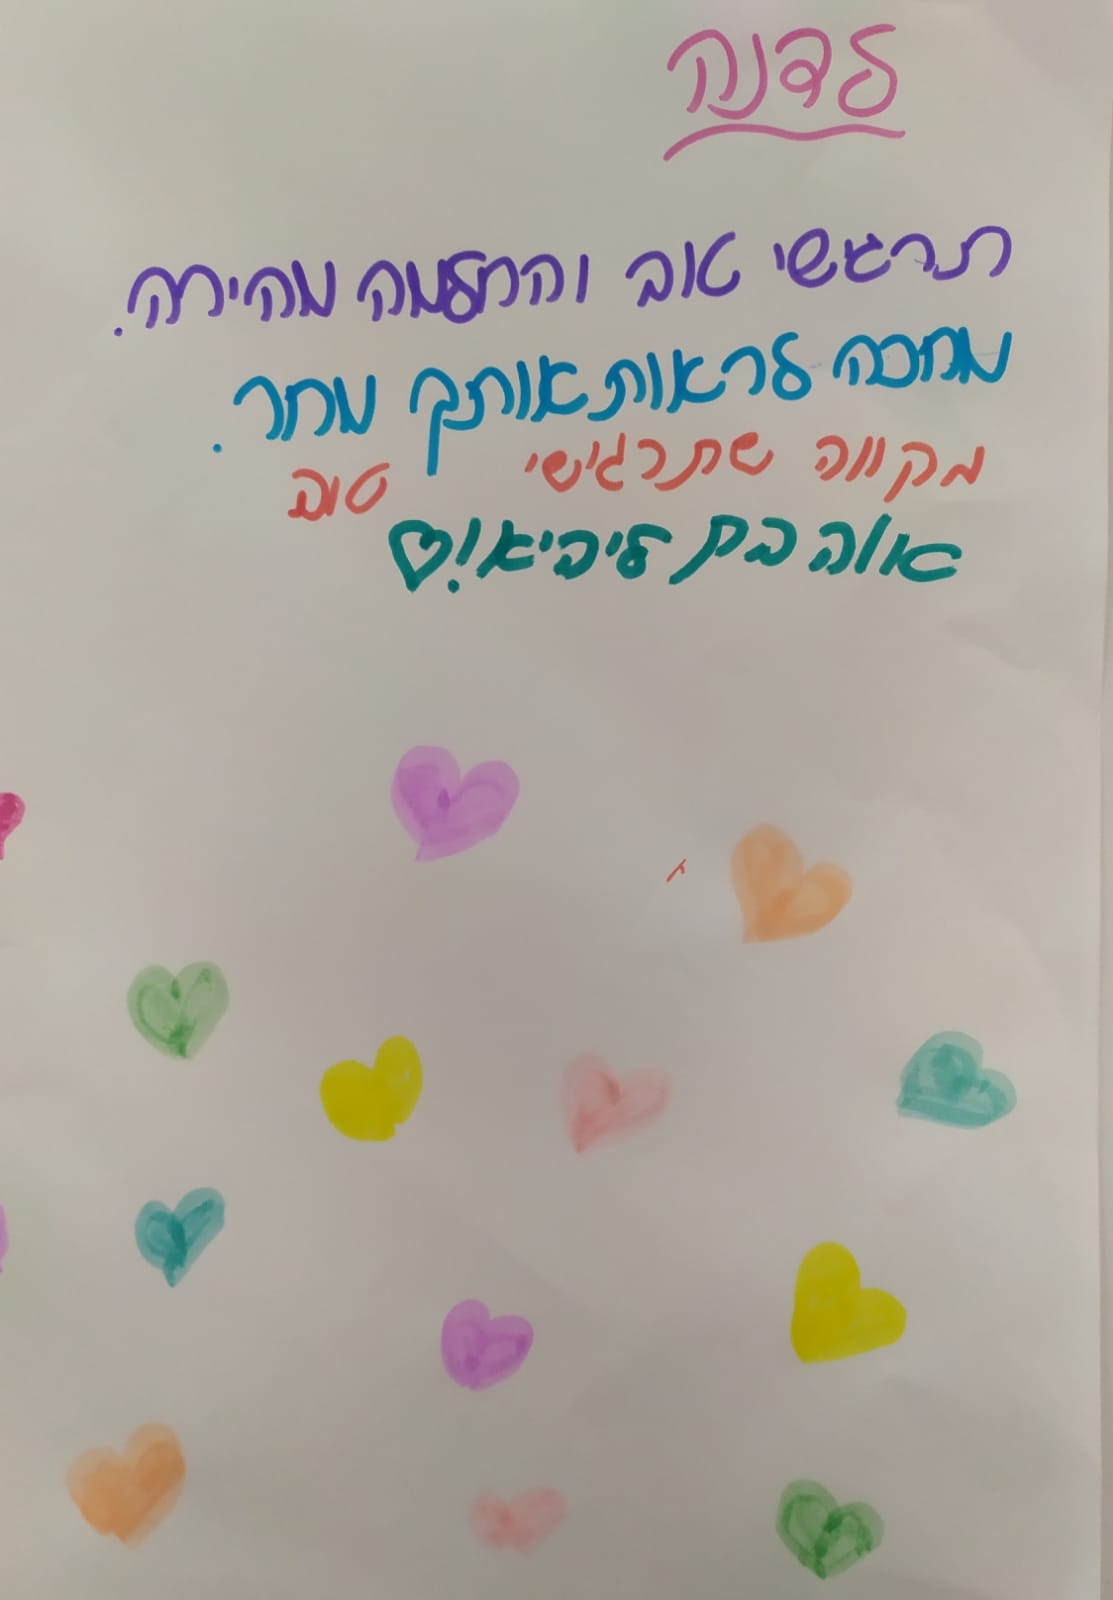 לדנה
תרגשי טוב והחלמה מהירה.
מחכה לראות אותך מחר.
מקווה שתרגישי טוב
אוהבת ליביא!